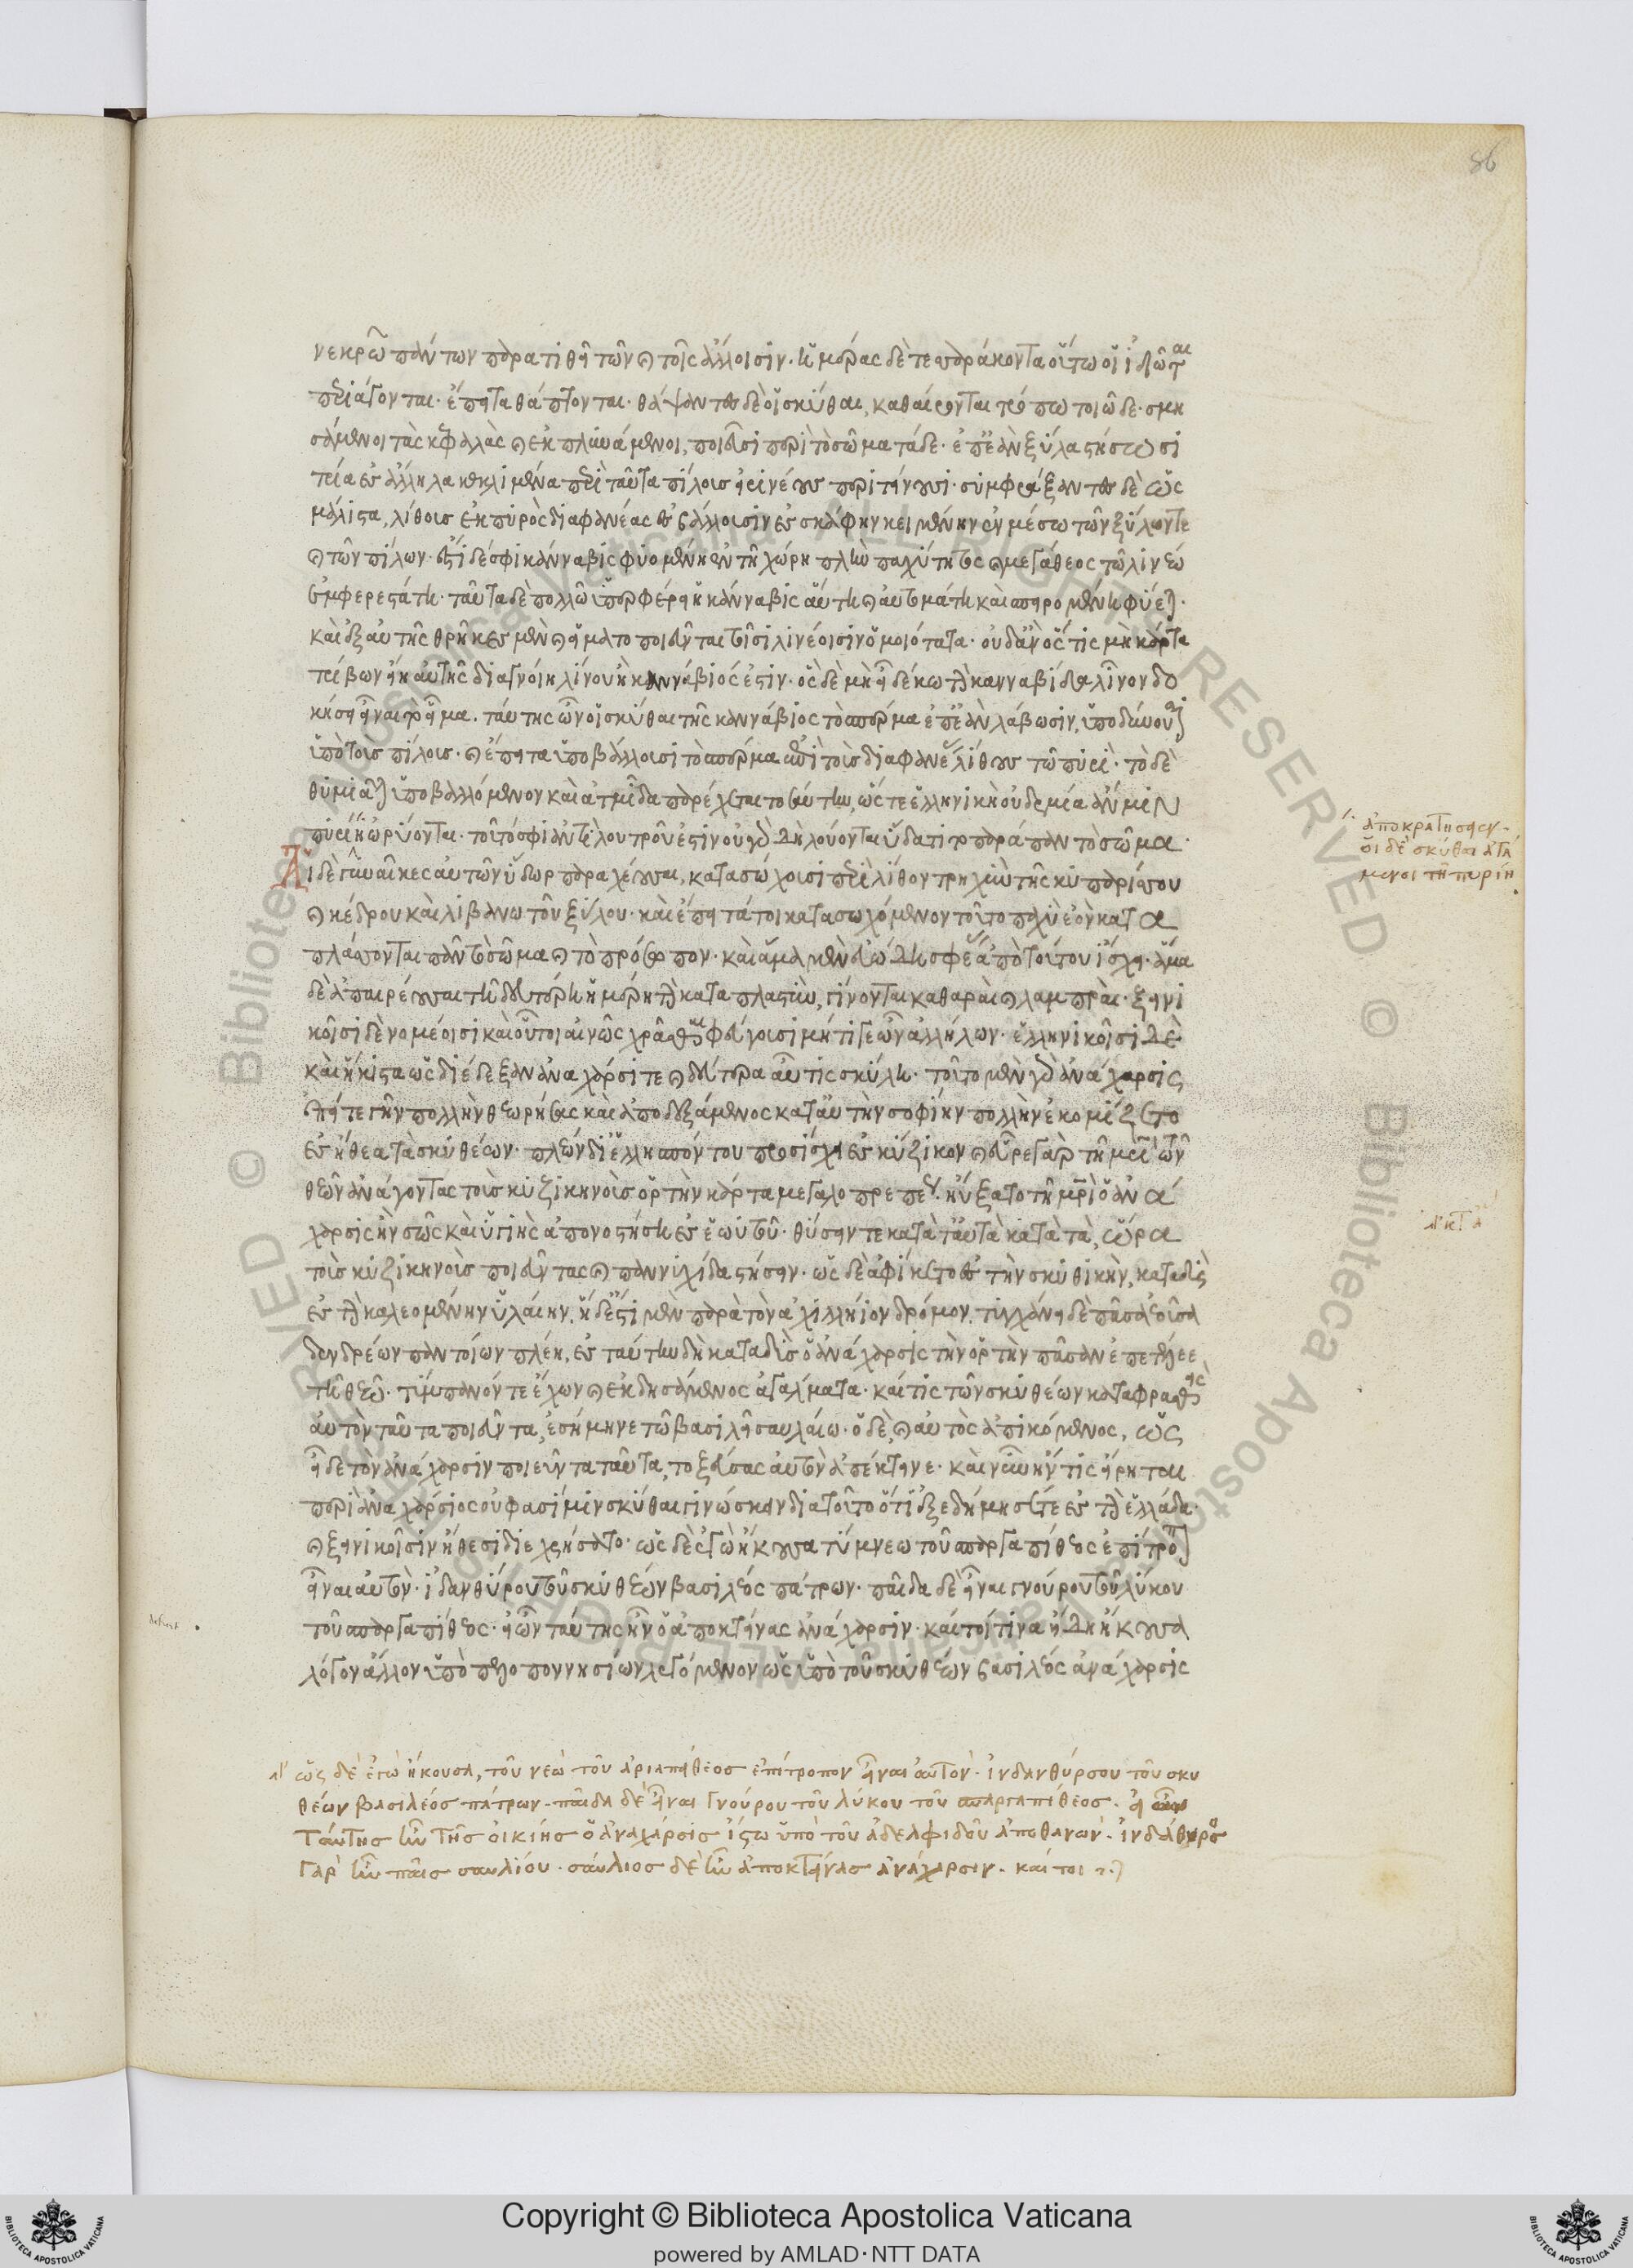 νεκρῶ πάντων παρατιθῆ τῶν καὶ τοῖς ἄλλοισιν. ἡμέρας δὲ τεσσεράκοντα οὕτω οἱ ἰδιῶται
περιάγονται. ἔπειτα θάπτονται. θάψαντες δὲ οἱ σκύθαι, καθαίρονται τρόπω τοιῶδε. σμη
σάμενοι τὰς κεφαλὰς καὶ ἐκπλυνάμενοι, ποιεῦσι περὶ τὸ σῶμα τάδε. ἐπεὰν ξύλα στήσωσι
τρία ἐς ἄλληλα κεκλιμένα περὶ ταῦτα πίλους εἰρινέους περιτείνουσι. συμφράξαντες δὲ ὡς
μάλιστα, λίθους ἐκ πυρὸς διαφανέας ἐσβάλλουσιν ἐς σκάφην κειμένην ἐν μέσω τῶν ξύλων τε
καὶ τῶν πίλων. ἔστι δέ σφι κάνναβις φυομένη ἐν τῆ χώρη πλὴν παχύτητος καὶ μεγάθεος τῶ λινέω
ἐμφερεστάτη. ταῦτα δὲ πολλῶ ὑπερφέρει ἡ κάνναβις αὕτη καὶ αὐτομάτη καὶ σπειρομένη φύεται.
καὶ ἐξ αὐτῆς θρήικες μὲν καὶ εἵματα ποιεῦνται τοῖσι λινέοισιν ὁμοιότατα. οὐδ' ἂν ὅστις μὴ κάρτα
τρίβων εἴη αὐτῆς διαγνοίη λίνου ἢ καννάβιός ἐστιν. ὃς δὲ μὴ εἶδέ κω τὴν κανναβίδα λίνον δο
κήσει εἶναι τὸ εἷμα. ταύτης ὦν οἱ σκύθαι τῆς καννάβιος τὸ σπέρμα ἐπεὰν λάβωσιν, ὑποδύνουσι
ὑπὸ τοὺς πίλους. καὶ ἔπειτα ὑποβάλλουσι τὸ σπέρμα ἐπὶ τοὺς διαφανέας λίθους τῶ πυρί. τὸ δὲ
θυμιᾶται ὑποβαλλόμενον καὶ ἀτμίδα παρέχεται τοσαύτην, ὥστε ἑλληνικὴ οὐδεμία ἄν μιν
πυρίη ὠρύονται. τοῦτό σφι ἀντὶ λουτροῦ ἐστιν οὐ γὰρ δὴ λούονται ὕδατι τὸ παράπαν τὸ σῶμα.
Αἱ δὲ γυναῖκες αὐτῶν ὕδωρ παραχέουσαι, κατασώχουσι περὶ λίθον τρηχὺν τῆς κυπαρίσσου
καὶ κέδρου καὶ λιβάνω τοῦ ξύλου. καὶ ἔπειτά τοι κατασωχόμενον τοῦτο παχὺ ἐὸν κατα
πλάσσονται πᾶν τὸ σῶμα καὶ τὸ πρόσωπον. καὶ ἅμα μὲν εὐωδίη σφέας ἀπὸ τούτου ἴσχει. ἅμα
δὲ ἀπαιρέουσαι τῆ δευτέρη ἡμέρη τὴν καταπλαστὺν, γίνονται καθαραὶ καὶ λαμπραί. ξεινι
κοῖσι δὲ νομέοισι καὶ οὗτοι αἰνῶς χρᾶσθαι φεύγουσι μήτι γε ὦν ἀλλήλων. ἑλληνικοῖσι δὲ
καὶ ἥκιστα ὡς διέδεξαν ἀνάχαρσί τε καὶ δεύτερα αὖτις σκύλη. τοῦτο μὲν γὰρ ἀνάχαρσις
ἐπείτε γῆν πολλὴν θεωρήσας καὶ ἀποδεξάμενος κατ' αὐτὴν σοφίην πολλὴν ἐκομίζετο
ἐς ἤθεα τὰ σκυθέων. πλέων δι' ἑλλησπόντου προσίσχει ἐς κύζικον καὶ εὗρε γὰρ τῆ μητρὶ τῶν
θεῶν ἀνάγοντας τοὺς κυζικηνοὺς ὁρτὴν κάρτα μεγαλοπρεπέως. ηὔξατο τῆ μητρὶ ὁ ἀνά
χαρσις ἢν σῶς καὶ ὑγιὴς ἀπονοστήση ἐς ἑωυτοῦ. θύσειν τε κατὰ ταὐτὰ κατὰ τὰ, ὥρα
τοὺς κυζικηνοὺς ποιεῦντας καὶ παννυχίδα στήσειν. ὡς δὲ ἀφίκετο ἐς τὴν σκυθικὴν, καταδὺς
ἐς τὴν καλεομένην ὑλαίην. ἡ δ' ἔστι μὲν παρὰ τὸν ἀχιλλήιον δρόμον. τυγχάνει δὲ πᾶσα ἐοῦσα
δενδρέων παντοίων πλέη. ἐς ταύτην δὴ καταδὺς ὁ ἀνάχαρσις τὴν ὁρτὴν πᾶσαν ἐπετέλεε
τῆ θεῶ. τύμπανόν τε ἔχων καὶ ἐκδησάμενος ἀγάλματα. καί τις τῶν σκυθέων καταφρασθεὶς
αὐτὸν ταῦτα ποιεῦντα, ἐσήμηνε τῶ βασιλῆι σαυλίω. ὁ δὲ, καὶ αὐτὸς ἀπικόμενος, ὡς
εἶδε τὸν ἀνάχαρσιν ποιεῦντα ταῦτα, τοξεύσας αὐτὸν ἀπέκτεινε. καὶ νῦν ἤν τις εἴρηται
περὶ ἀναχάρσιος οὔ φασί μιν σκύθαι γινώσκειν διὰ τοῦτο ὅτι ἐξεδήμησέ τε ἐς τὴν ἑλλάδα.
καὶ ξεινικοῖσιν ἤθεσι διεχρήσατο. ὡς δὲ ἐγὼ ἤκουσα τύμνεω τοῦ σπαργαπίθεος ἐπίτροπον
εἶναι αὐτὸν. ἰδανθύρου τοῦ σκυθέων βασιλέος πάτρων. παῖδα δὲ εἶναι γνούρου τοῦ λύκου
τοῦ σπαργαπίθεος. εἰ ὦν ταύτης ἦν ὁ ἀποκτείνας ἀνάχαρσιν. καίτοι τινὰ ἤδη ἤκουσα
λόγον ἄλλον ὑπὸ πελοποννησίων λεγόμενον ὡς ὑπὸ τοῦ σκυθέων βασιλέος ἀνάχαρσις
ἀποκρατήσειεν.
οἱ δὲ σκύθαι ἀγά
μενοι τῆ πυρίη
ὡς δὲ ἐγὼ ἤκουσα, τοῦ νεὼ τοῦ ἀριαπείθεος ἐπίτροπον εἶναι αὐτὸν. ἰνδανθύρσου τοῦ σκυ
θέων βασιλέος πάτρων. παῖδα δὲ εἶναι Γνούρου τοῦ λύκου τοῦ σπαργαπίθεος. εἰ ὦν
ταύτης ἦν τῆς οἰκίης ὁ ἀνάχαρσις ἴστω ὑπὸ τοῦ ἀδελφιδοῦ ἀποθανών. ἰνδάθυρσος
Γὰρ ἦν παῖς σαυλίου. σαύλιος δὲ ἦν ἀποκτείνας ἀνάχαρσιν. καίτοι
86
Copyright © Biblioteca Apostolica Vaticana
powered by AMLAD·NTT DATA